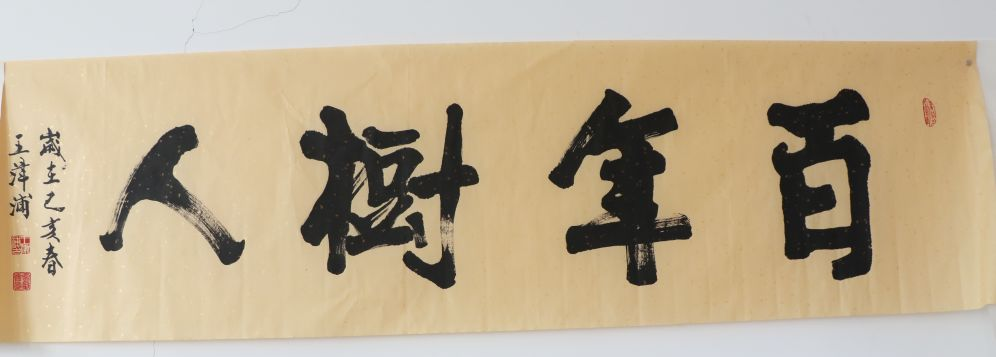 百年樹人
歲在己亥春
王澤浦